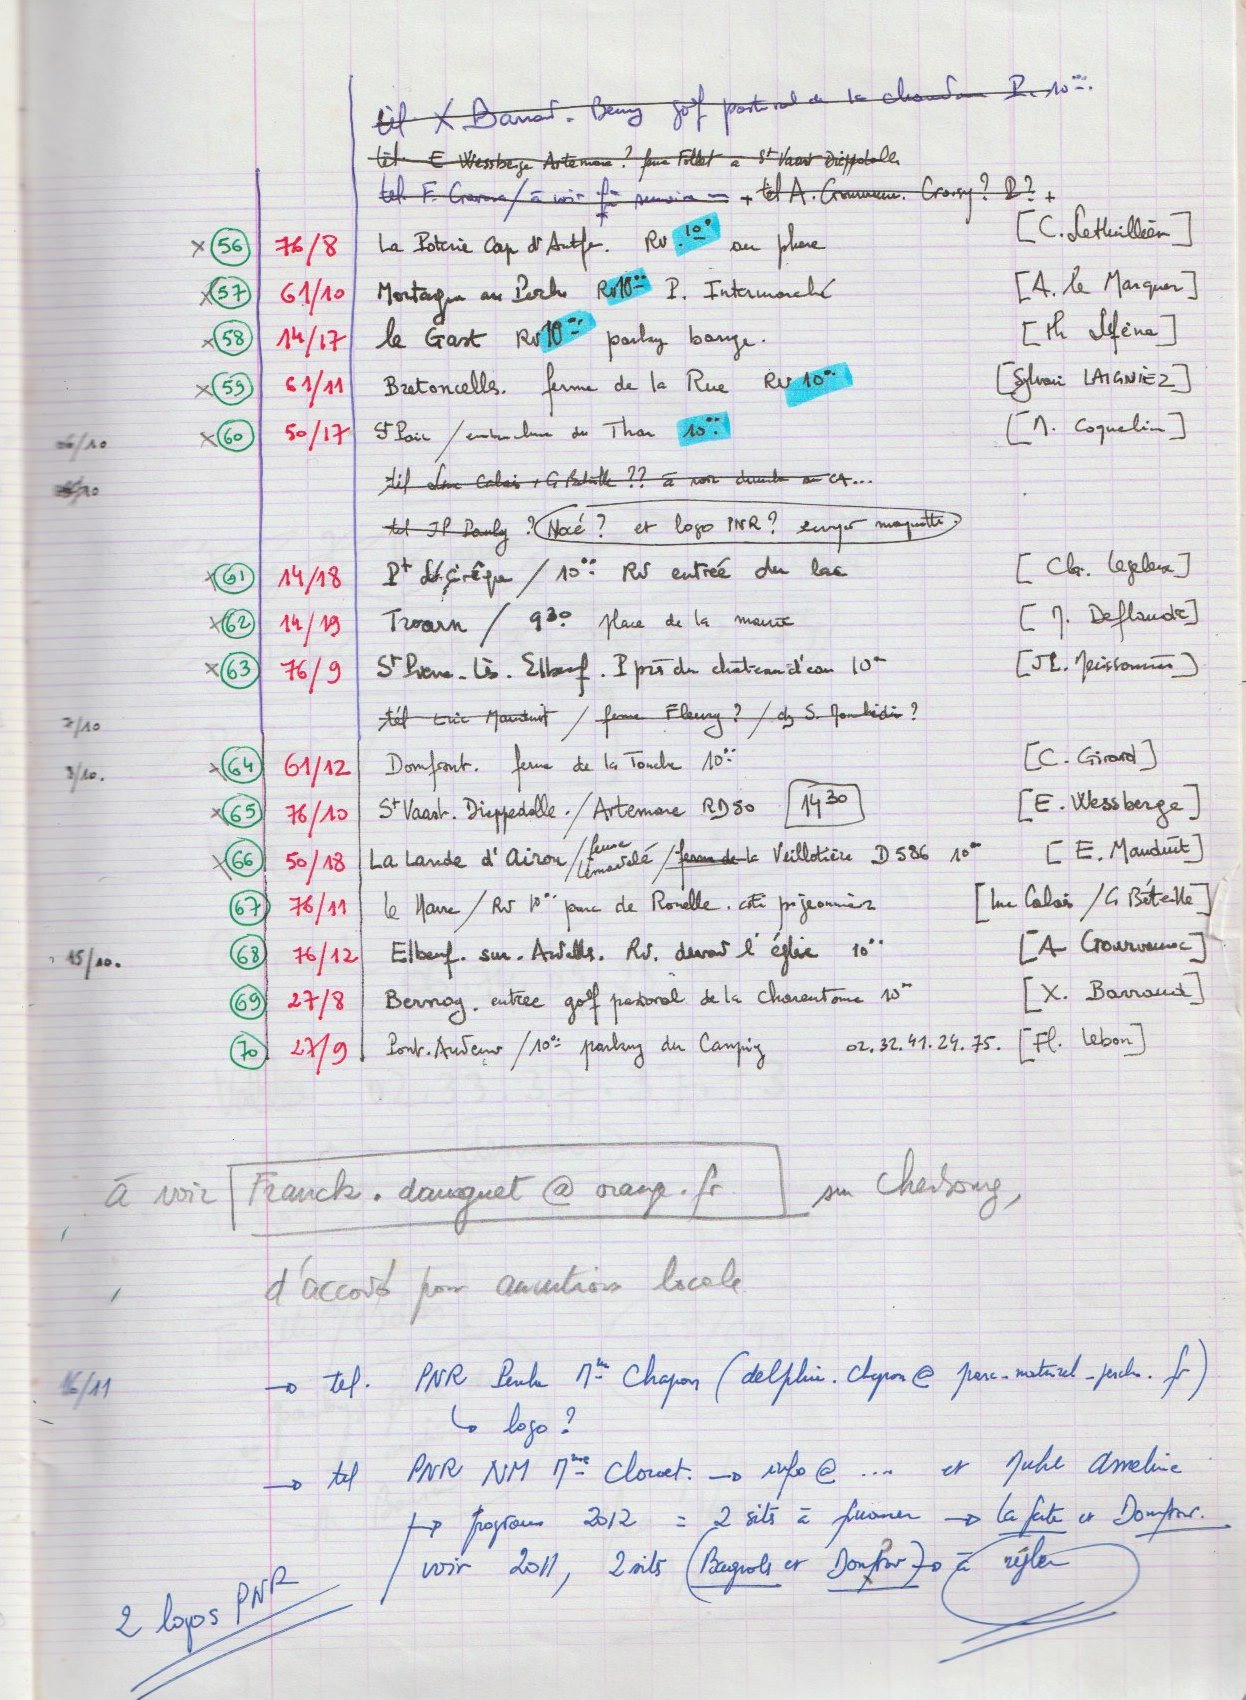 tél X Barraud. Bernay golf pastoral de la charentonne P. 10⁰⁰.
tél. E Wessberge Artemare? ferme Follet à St Vaast Dieppedalle
tel. F. / à voir + tel A. Gourvennec. Croisy? R? +
x 56 76/8 La Poterie Cap d'Antifer. Rv. 10⁰⁰ au phare [C. Lethuillier]
x 57 61/10 Mortagne au Perche Rv 10⁰⁰ P. Intermarché [A. le Marquer]
x 58 14/17 le Gast Rv 10⁰⁰ parking barrage. [Th]
x 59 61/11 Bretoncelles. ferme de la Rue RV 10⁰⁰ [Sylvain LAIGNIEZ]
06/10 x 60 50/17 St Pair / embouchure du Thar 10⁰⁰ [M. Coquelin]
/10 tél Luc Calais, G Bétaille ?? à voir
tel JP Pauly ? Nocé ? et logo PNR ? envoyer maquette.
x 61 14/18 Pt l'évêque / 10⁰⁰ RV entrée du lac [Ch.]
x 62 14/19 Troarn / 9³⁰ place de la mairie [M. Deflandre]
x 63 76/9 St Pierre. Lès. Elbeuf. P près du château d'eau 10⁰⁰ [JL.]
7/10 tél Eric Manduit / ferme Fleury ? / S. ?
9/10. x 64 61/12 Domfront. ferme de la Touche 10⁰⁰ [C. Girard]
x 65 76/10 St Vaast. Dieppedalle. / Artemare RD50 14³⁰ [E. Wessberge]
x 66 50/18 La Lande d'Airou / ferme / ferme de la Veillotière D 586 10⁰⁰ [E. Manduit]
67 76/11 le Havre / RV 10⁰⁰ parc de Rouelle. côté pigeonnier [Luc Calais / G Bétaille]
15/10. 68 76/12 Elbeuf. sur. Andelle. RV. devant l'église 10⁰⁰ [A Gourvennec]
69 27/8 Bernay. entrée golf pastoral de la Charentonne 10⁰⁰ [X. Barraud]
70 27/9 Pont. Audemer / 10⁰⁰ parking du Camping 02.32.41.24.75. [Fl. Lebon]
à voir Franck.dauguet@orange.fr sur Cherbourg,
d'accord pour locale
16/11 → tel. PNR Perche Mme Chapon (delphine.chapon@parc-naturel-perche.fr)
↳ logo ?
→ tel PNR NM Mme Clouet. → info@ .... et Julie Ameline
↦ programme 2012 = 2 sites à financer → la ferté et Domfront.
voir 2011, 2 sites (Bagnols et Domfront) → à régler
2 logos PNR